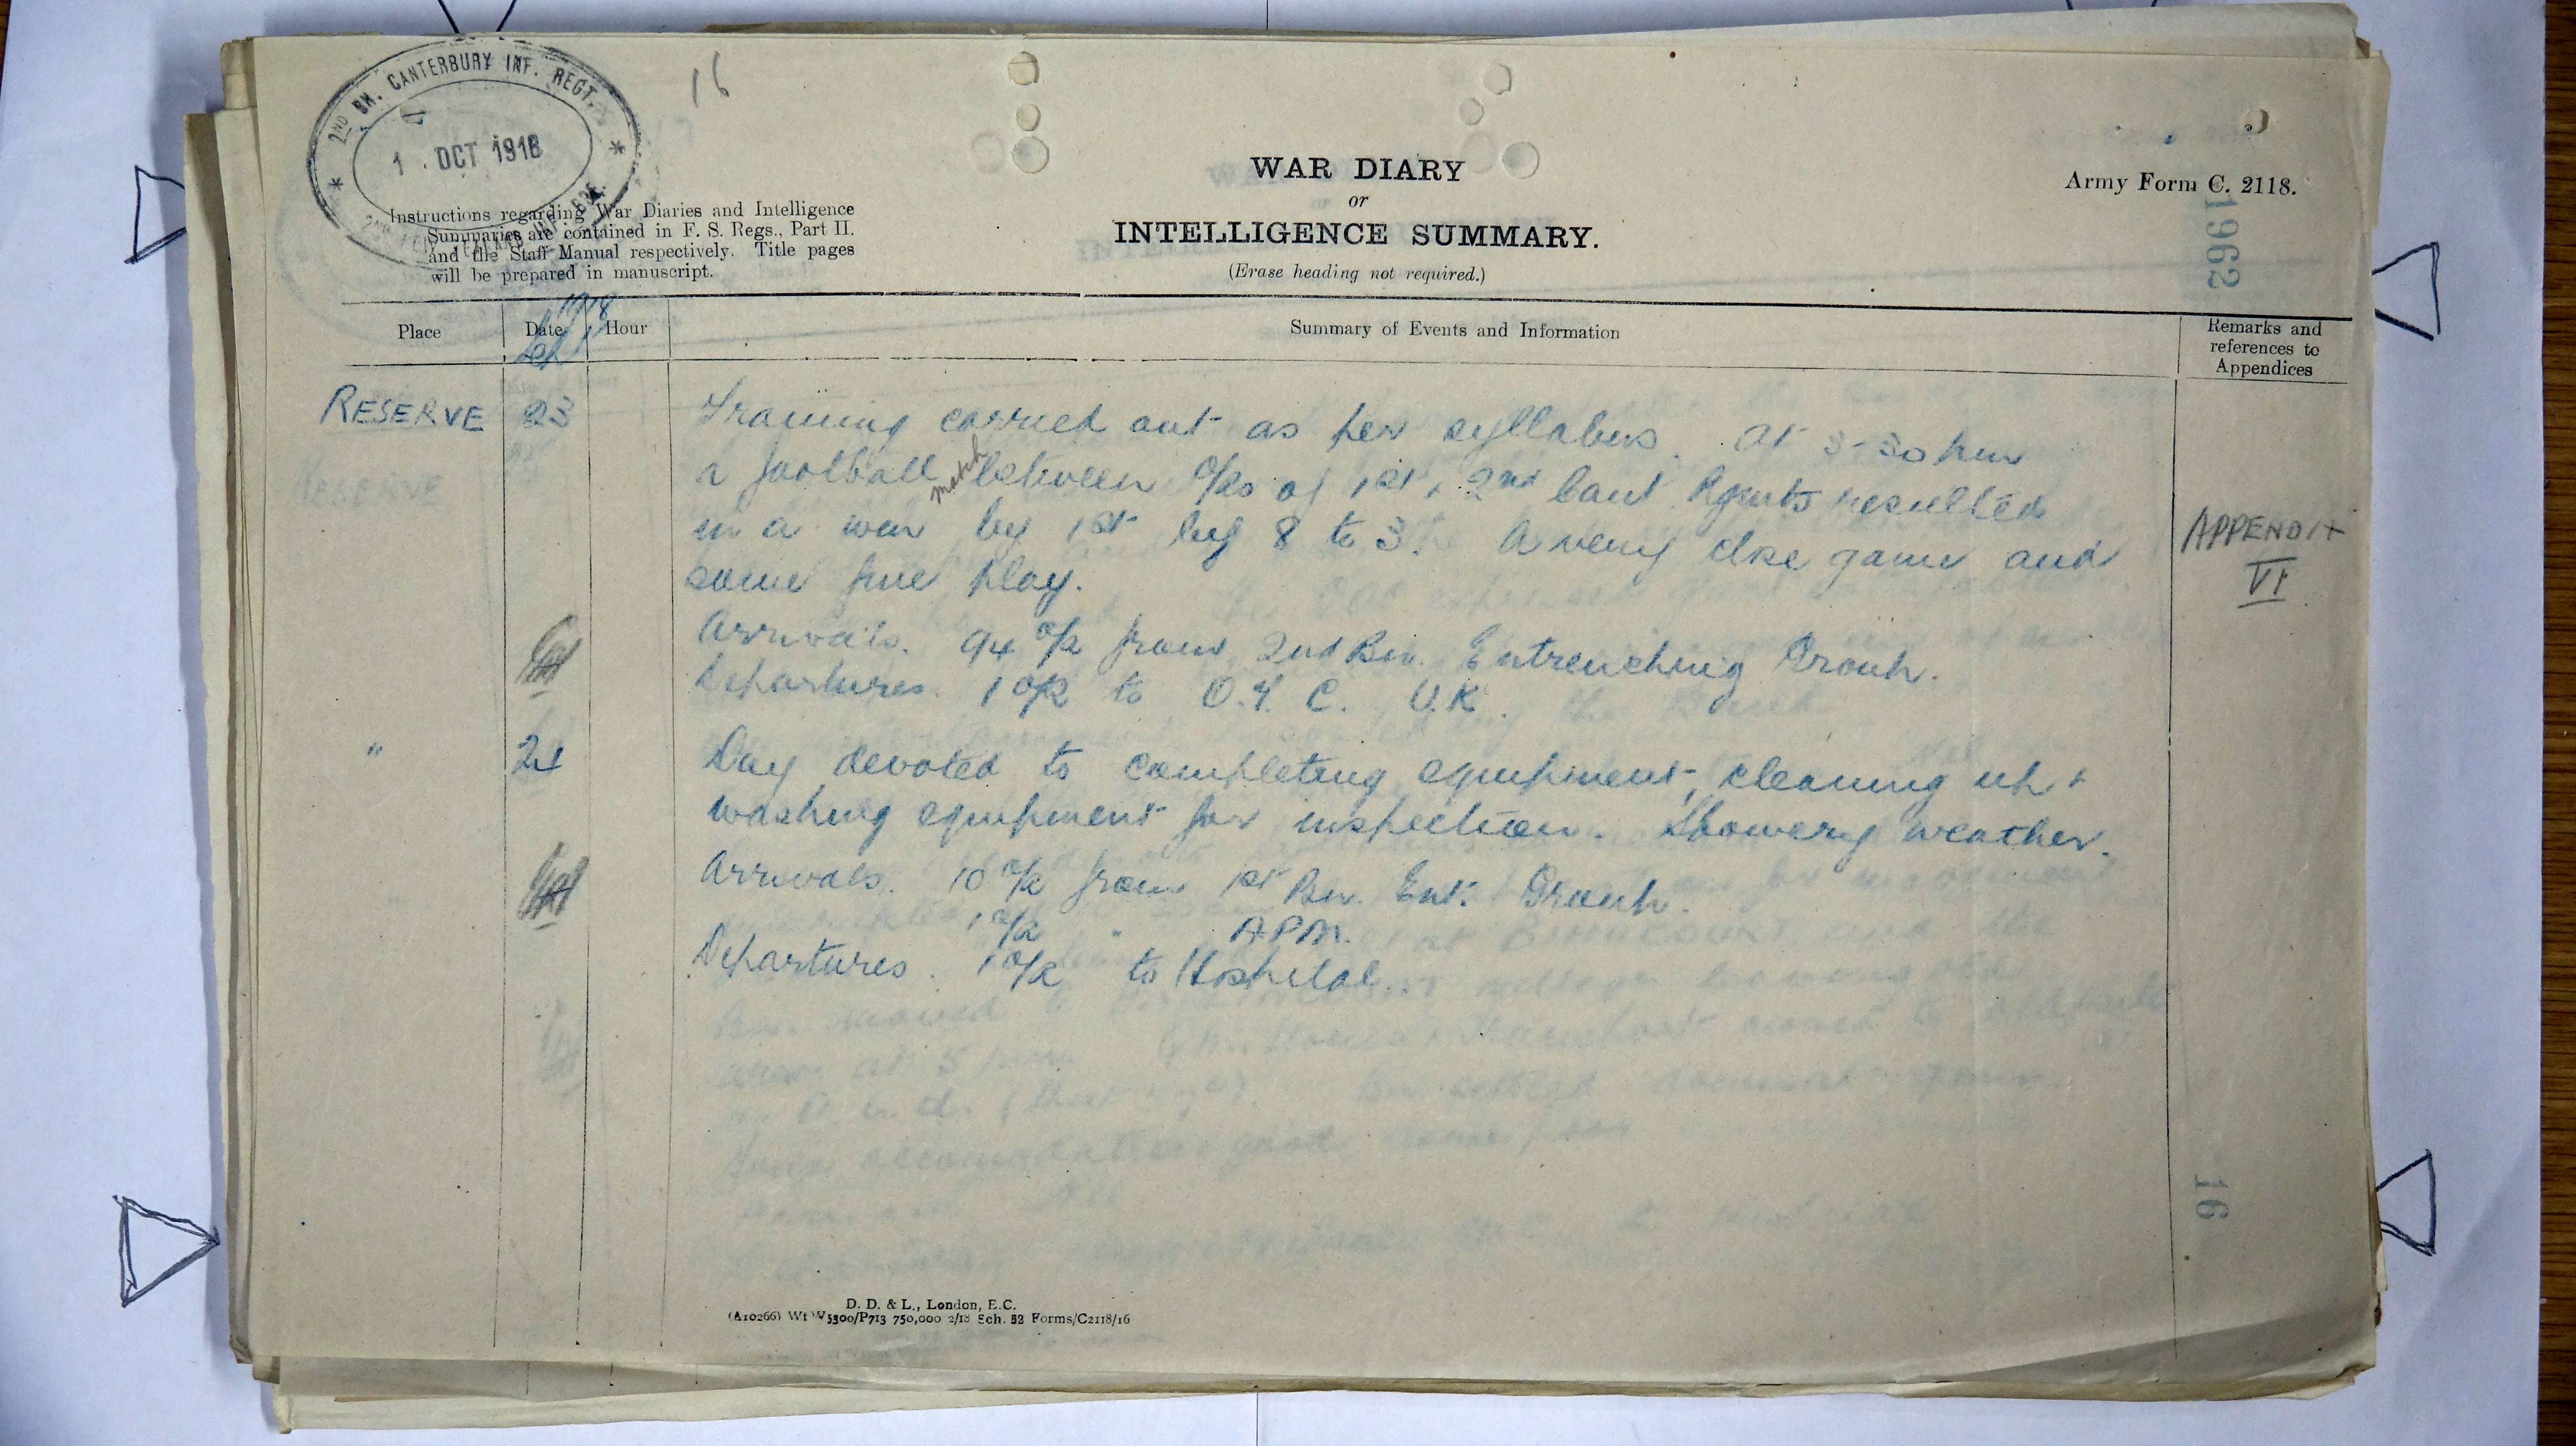 2ND BN. CANTERBURY INF. REGT.
1 . OCT 1918
16
WAR DIARY
or
INTELLIGENCE SUMMARY.
(Erase heading not required.)
Army Form C. 2118.
Instructions regarding War Diaries and Intelligence
Summaries are contained in F. S. Regs., Part II.
and the Staff Manual respectively. Title pages
will be prepared in manuscript.
1962
1918
Place Date Hour Summary of Events and Information Remarks and
references to
Appendices
RESERVE 23 Training carried out as per syllabus. At 3-30 pm
a football match between O/Rs of 1st, 2nd Cant Rgmts resulted
in a win by 1st by 8 to 3. A very close game and
some fine play.
APPENDIX
VI
Arrivals. 94 O/R from 2nd Bn. Entrenching Group.
Departures. 1 O/R to O.T.C. U.K.
" 24 Day devoted to completing equipment, cleaning up +
washing equipment for inspection. Showery weather.
Arrivals. 10 O/R from 1st Bn. Ent. Group.
1 O/R " APM.
Departures. 1 O/R to Hospital.
16
D. D. & L., London, E.C.
(A10266) Wt W5300/P713 750,000 2/18 Sch. 52 Forms/C2118/16